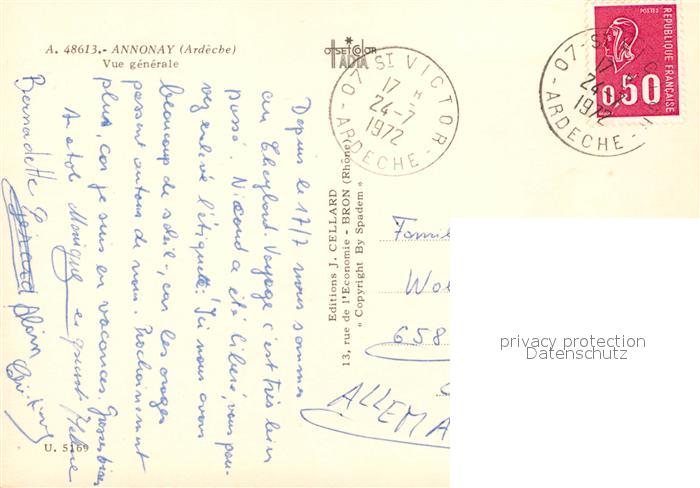 A. 48613.- ANNONAY (Ardèche)
Vue générale
OFFSET COLOR
IADIA
07-ST VICTOR
17 H
24-7
1972
-ARDECHE-
07-ST
17
24-7
1972
ARDECHE-
POSTES
REPUBLIQUE FRANÇAISE
0,50
Depuis le 17/7 nous sommes
au Cheylard Voyage c'est très bien
passé. Nicoud a été libéré, vous pou-
vez enlevé l'étiquette! Ici nous avons
beaucoup de soleil, car les orages
passent autour de nous. Prochainement
plus, car je suis en vacances. Grosses bises
Monique
Bernadette Gérard Alain
Editions J. CELLARD
13, rue de l'Economie - BRON (Rhône)
« Copyright By Spadem »
Famil
Wo
658
ALLEMA
U. 5169
privacy protection
Datenschutz